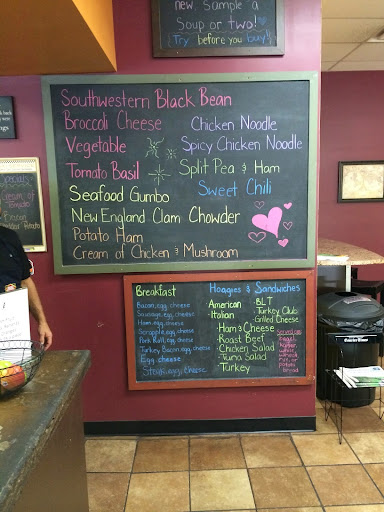 new. Sample a
Soup or two!
Try before you buy!
Southwestern Black Bean
Broccoli Cheese
Chicken Noodle
Vegetable
Spicy Chicken Noodle
Tomato Basil
Split Pea & Ham
Seafood Gumbo
Sweet Chili
New England Clam Chowder
Potato Ham
Cream of Chicken & Mushroom
Breakfast
Bacon, egg, cheese
Sausage, egg, cheese
Ham, egg, cheese
Scrapple, egg, cheese
Pork Roll, egg, cheese
Turkey Bacon, egg, cheese
Egg, cheese
Steak, egg, cheese
Hoagies & Sandwiches
American
Italian
Ham & Cheese
Roast Beef
Chicken Salad
Tuna Salad
Turkey
BLT
Turkey Club
Grilled Cheese
Served on:
Cream of
Tomato